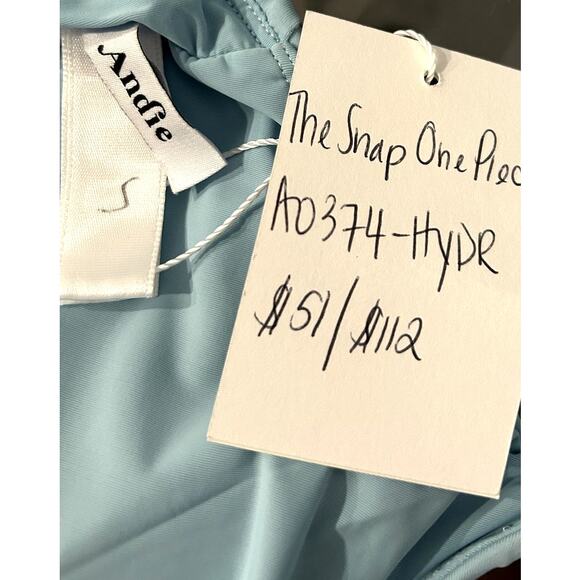 Andie
S
The Snap One Piec
A0374-HYDR
$51/$112